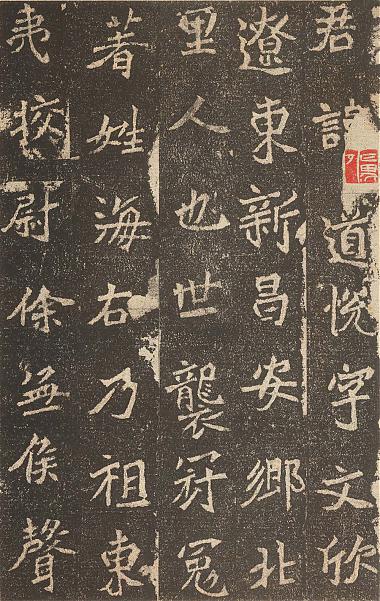 君諱道悅字文欣
遼東新昌安鄉北
里人也世襲冠冕
著姓海右乃祖東
夷挍尉徐無侯聲